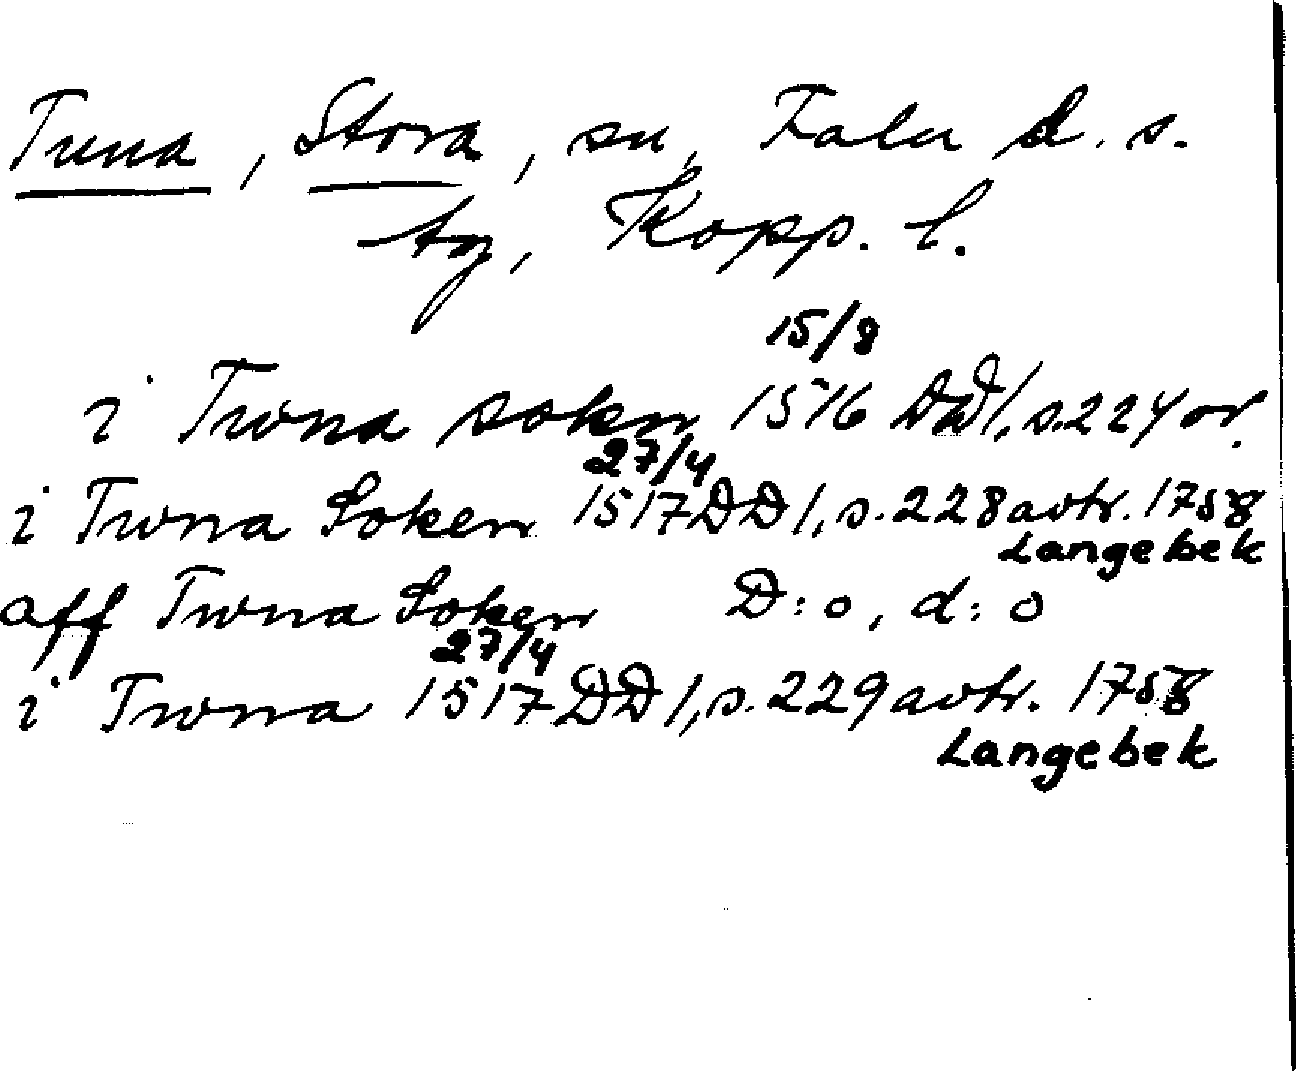 Tuna, Stora, sn, Falu d. s.
tg, Kopp. l.
15/8
i Twna sokn 1516 DD1, s. 224 or.
27/4
i Twna Soken 1517 DD1, s. 228 avtr. 1758
Langebek
aff Twna Soken D: o, d: o
27/4
i Twna 1517 DD1, s. 229 avtr. 1758
Langebek